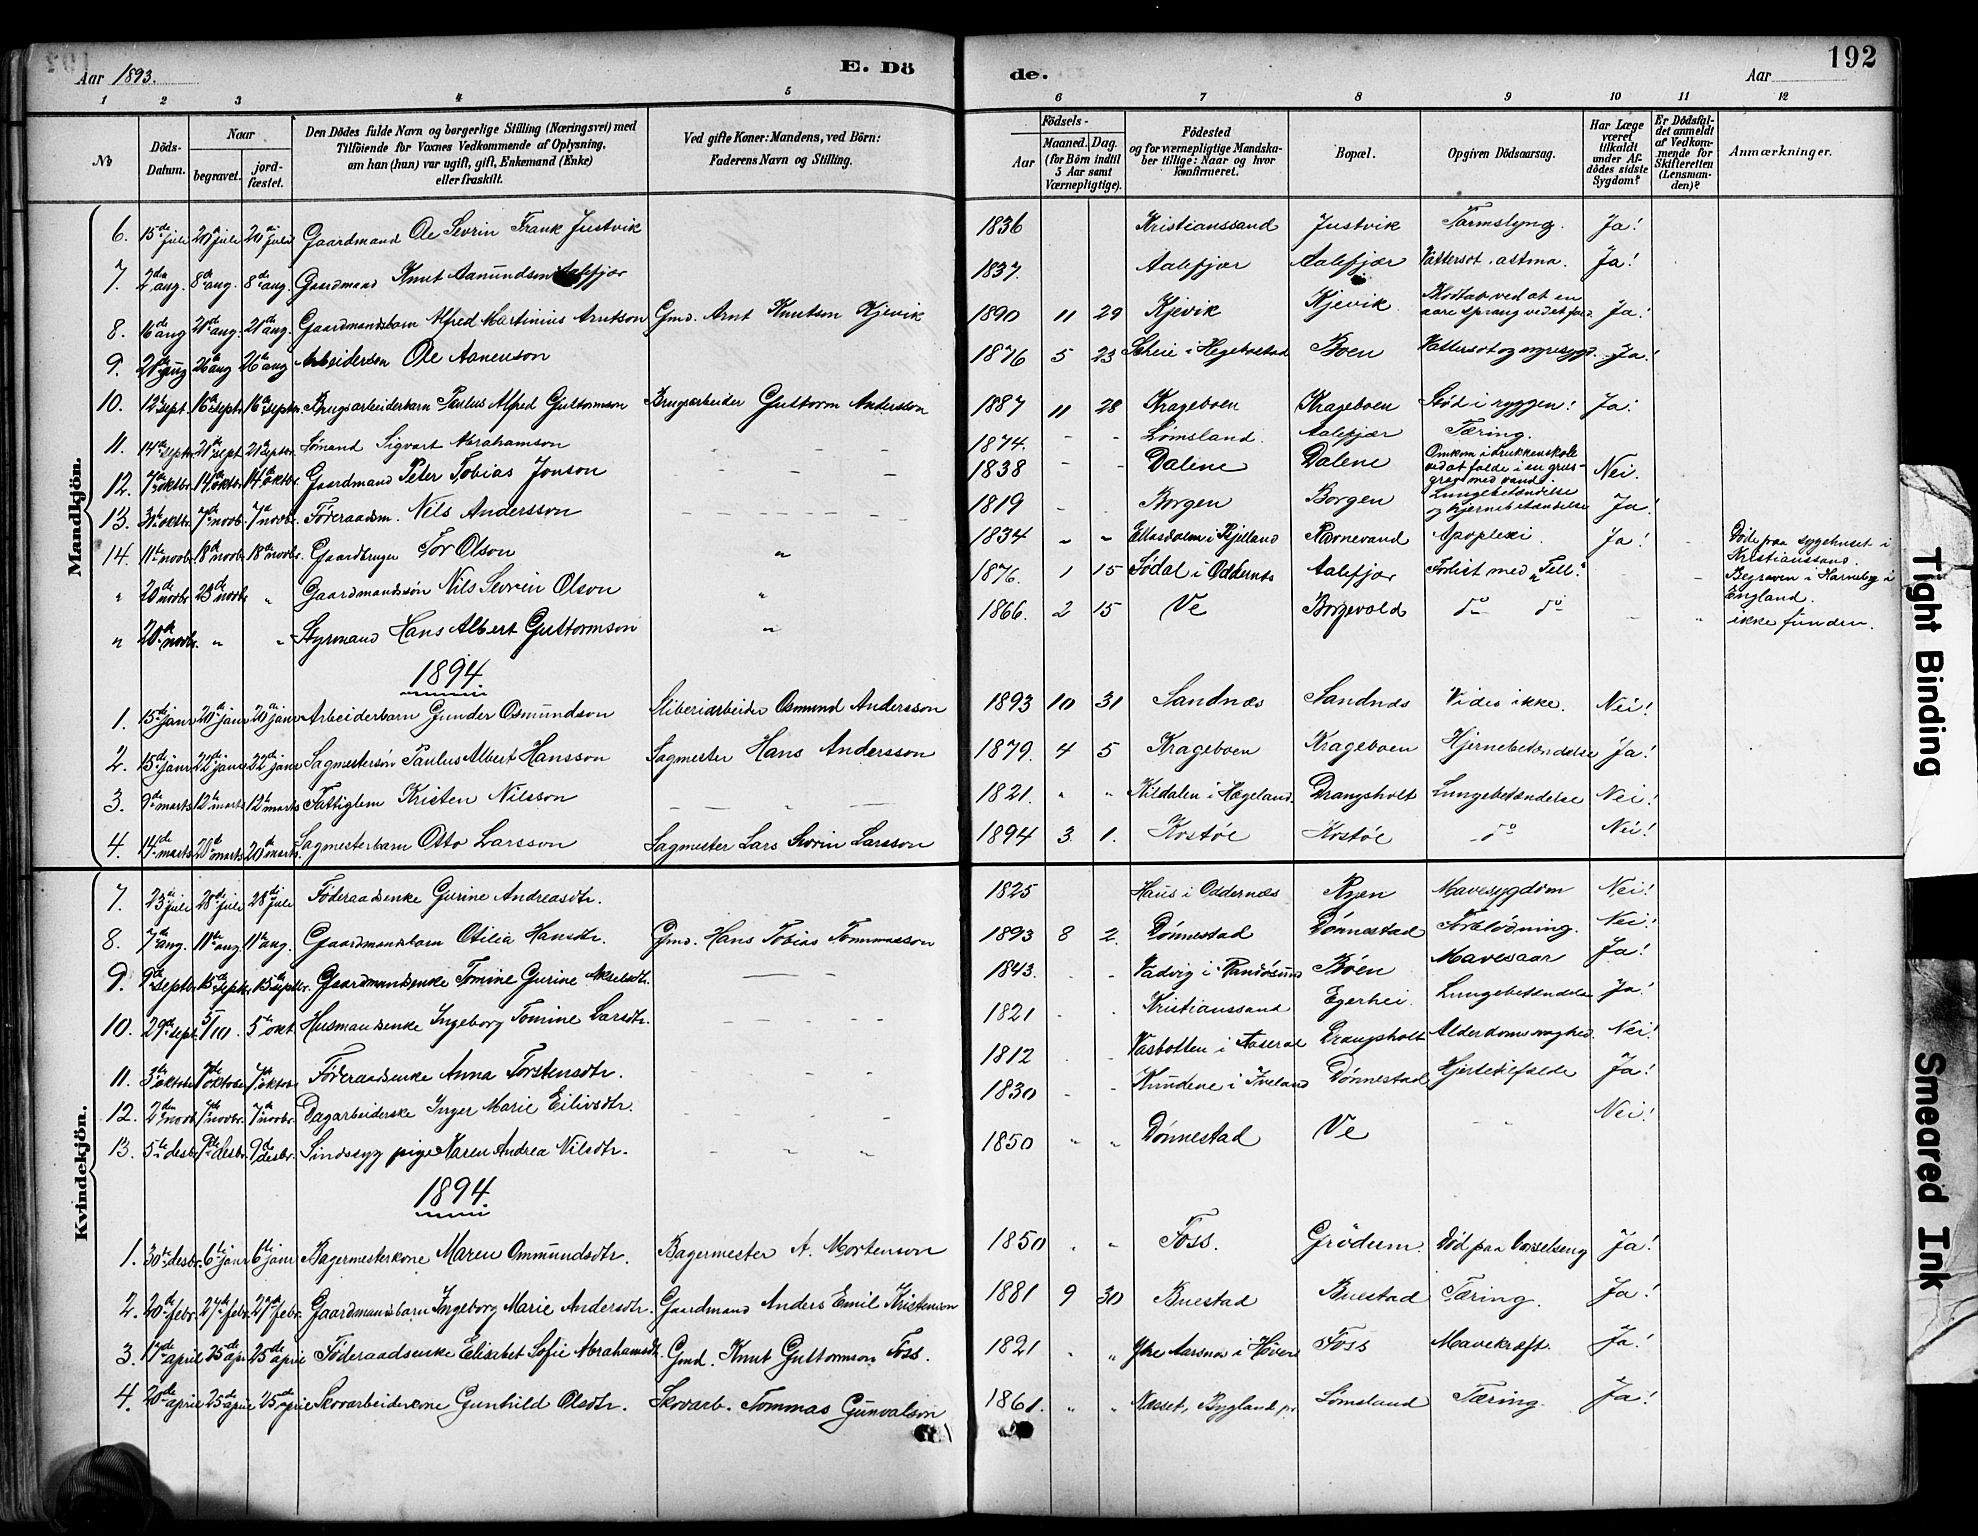 192
Aar 1893.
E. Dö
de.
Aar
1 2 3 4 5 6 7 8 9 10 11 12
No
Döds-Datum.
Naar
begravet.
jord-fæstet.
Den Dödes fulde Navn og borgerlige Stilling (Næringsvei) med
Tilföiende for Voxnes Vedkommende af Oplysning,
om han (hun) var ugift, gift, Enkemand (Enke)
eller fraskilt.
Ved gifte Koner: Mandens, ved Börn:
Faderens Navn og Stilling.
Födsels-
Aar
Maaned. Dag.
(for Börn indtil
5 Aar samt
Værnepligtige).
Födested
og for værnepligtige Mandska-
ber tillige: Naar og hvor
konfirmeret.
Bopæl.
Opgiven Dödsaarsag.
Har Læge
været
tilkaldt
under Af-
dödes sidste
Sygdom?
Er Dödsfal-
det anmeldt
af Vedkom-
mende for
Skifteretten
(Lensman-
den)?
Anmærkninger.
Mandkjön.
6. 15de juli 20de juli 20de juli Gaardmand Ole Sevrin Frank Justvik 1836 Kristianssand Justvik Tarmslyng. Ja!
7. 2den aug. 8de aug. 8de aug. Gaardmand Knut Aanundsen Aalefjær 1837. Aalefjær Aalefjær Vattersot, astma. Ja!
8. 16de aug 20de aug. 20de aug. Gaardmandsbarn Alfred Martinius Arntson Gmd. Arnt Knutson Kjevik 1890 11 29 Kjevik Kjevik Blodtab ved at en aare sprang Ja!
9. 20de aug 26de aug 26de aug Arbeidersøn Ole Aanenson 1876 5 23 i Hegebostad Boen Vattersot og nyresygd. Ja!
10. 12te sept. 16de septr. 16de septr. Brugsarbeiderbarn Paulus Alfred Guttormson Brugsarbeider Guttorm Andersson 1887 11 28 Krageboen Krageboen Stød i ryggen! Ja!
11. 14de septr. 20de sept. 20de septr. Sømand Sigvart Abrahamson 1874. Lømsland. Aalefjær Tæring.
12. 7de oktbr. 14de oktbr. 14de oktbr. Gaardmand Peter Tobias Jonson 1838 Dalene Dalene Omkom i drukkenskab ved at falde i en grus-grav med vand. Nei.
13. 31te oktbr. 7de novbr. 7de novbr. Føderaadsm. Nils Andersson 1819 Borgen Borgen Lungebetændelse og hjernebetændelse Ja!
14. 11te novbr. 18de novbr. 18de novbr. Gaardbruger Tor Olson " 1834 " " i Bjelland Ravnevand Apoplexi. Ja! Døde paa sygehuset i Kristianssand.
" 20de novbr. 23de novbr " Gaardmandssøn Nils Sevrin Olson " 1876. 1 15 Sødal i Oddernes Aalefjær Forlist med "Tell". Begraven i Harneby i England.
" 20de novbr. " " Styrmand Hans Albert Guttormson " 1866. 2 15 Ve Borgevold do do ikke funden.
1894.
1. 15de janr 20de janr 20de janr Arbeiderbarn Gunder Osmundson Sliberiarbeider Osmund Andersson 1893 10 31 Sandnes Sandnes Vides ikke. Nei!
2. 15de janr 22de janr 22de janr Sagmestersøn Paulus Albert Hansson Sagmester Hans Andersson 1879. 4 5 Krageboen Krageboen Hjernebetændelse Ja!
3. 9de marts 12te marts 12te marts Fattiglem Kristen Nilsson 1821. " " Kildalen i Hægeland. Drangsholt Lungebetændelse Nei!
4. 14de marts 20de marts 20de marts. Sagmesterbarn Otto Larsson Sagmester Lars Sevrin Larsson 1894 3 1. Krstøe Krstøe do Nei!
Kvindekjön.
7. 23de juli 28de juli 28de juli Føderaadsenke Gurine Andreasdtr. 1825 Haus i Oddernes Ryen Mavesygdom Nei!
8. 7de aug. 11te aug. 11te aug. Gaardmandsbarn Otilia Hansdtr. Gmd. Hans Tobias Tommasson 1893 8 2. Dønnestad Dønnestad Forblødning. Nei!
9. 9de septbr 15de septr. 15de septbr. Gaardmandsenke Tomine Gurine Akselsdtr. 1843. Vadvig i Randøsund Boen Mavesaar Ja!
10. 29de sept. 5/10. 5te okt. Husmandsenke Ingeborg Tomine Larsdtr. 1821 Kristianssand Egerhei. Lungebetændelse Ja!
11. 3die oktobr 7de oktober 7de oktbr. Føderaadsenke Anna Torstensdtr. 1812 Vasbotten i Aaseral Drangsholt Alderdomssvaghed. Nei!
12. 2den novb. 7de novbr. 7de novbr. Dagarbeiderske Inger Marie Eilivsdtr. 1830 i Iveland Dønnestad Hjertetilfælde Ja!
13. 5te desbr. 9de desbr. 9de desbr. Sindssyg pige Karen Andrea Nilsdtr. 1850 " " Dønnestad Ve Nei!
1894.
1. 30te desbr. 6te janr 6te janr Bagermesterkone Maren Ommundsdtr. Bagermester A. Mortenson 1850 " " Foss. Grødum. Død paa barselseng Ja!
2. 20de febr. 27de febr. 27de febr. Gaardmandsbarn Ingeborg Marie Andersdtr. Gaardmand Anders Emil Kristenson 1881 9 30 Buestad Buestad Tæring. Ja!
3. 17de april 25de apr. 25de april Føderaadsenke Elisabet Sofie Abrahamsdtr. Gmd. Knut Guttormson Foss. 1821 " " Ytre Aarsnes i Foss Mavekræft. Ja!
4. 20de april 25de april 25de april Skovarbeiderkone Gunhild Olsdtr. Skovarb. Tommas Gunvalson 1861. " " Næset, Bygland Lømsland Tæring. Ja!
Tight Binding
Smeared Ink